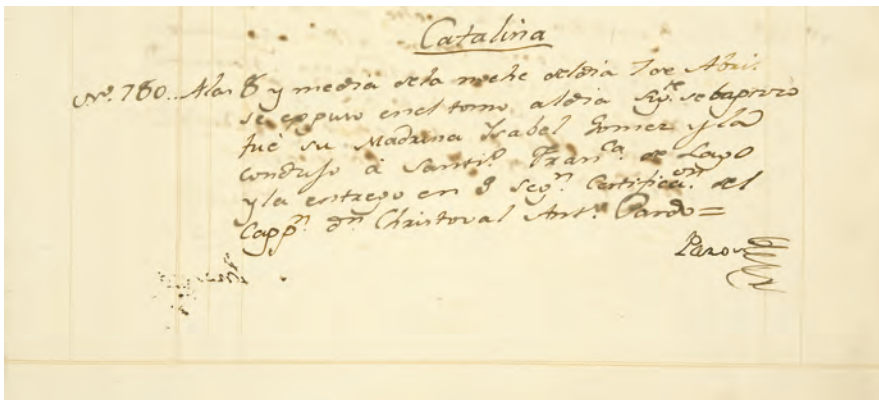 Catalina
Nº. 780.. A las 8 y media dela noche deldia 7 de Abril
se expuso en el torno, aldia sigte. se baptizó
fué su Madrina Ysabel Gomez y la
condujo á Santiº Franca. de Lago
y la entrego en 9 segn. Certificaon. del
Cappn. Dn. Christoval Antº. Pardo=